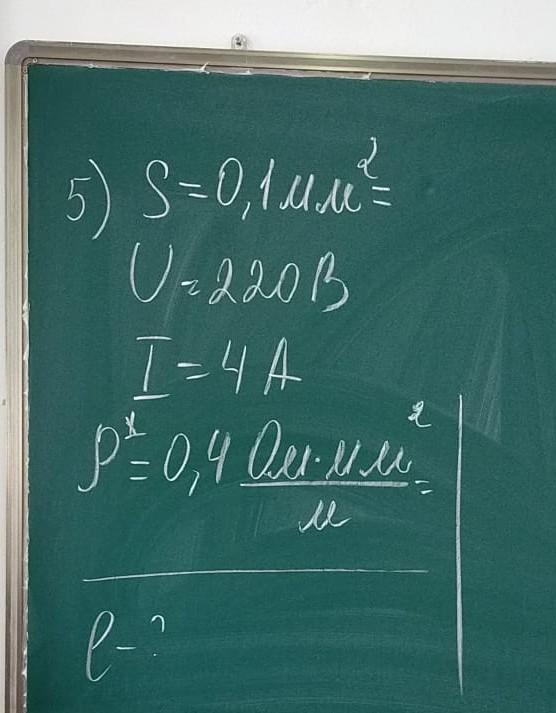 5) S=0,1мм²=
U=220В
I=4А
ρ*=0,4 Ом·мм²/м=
l-?